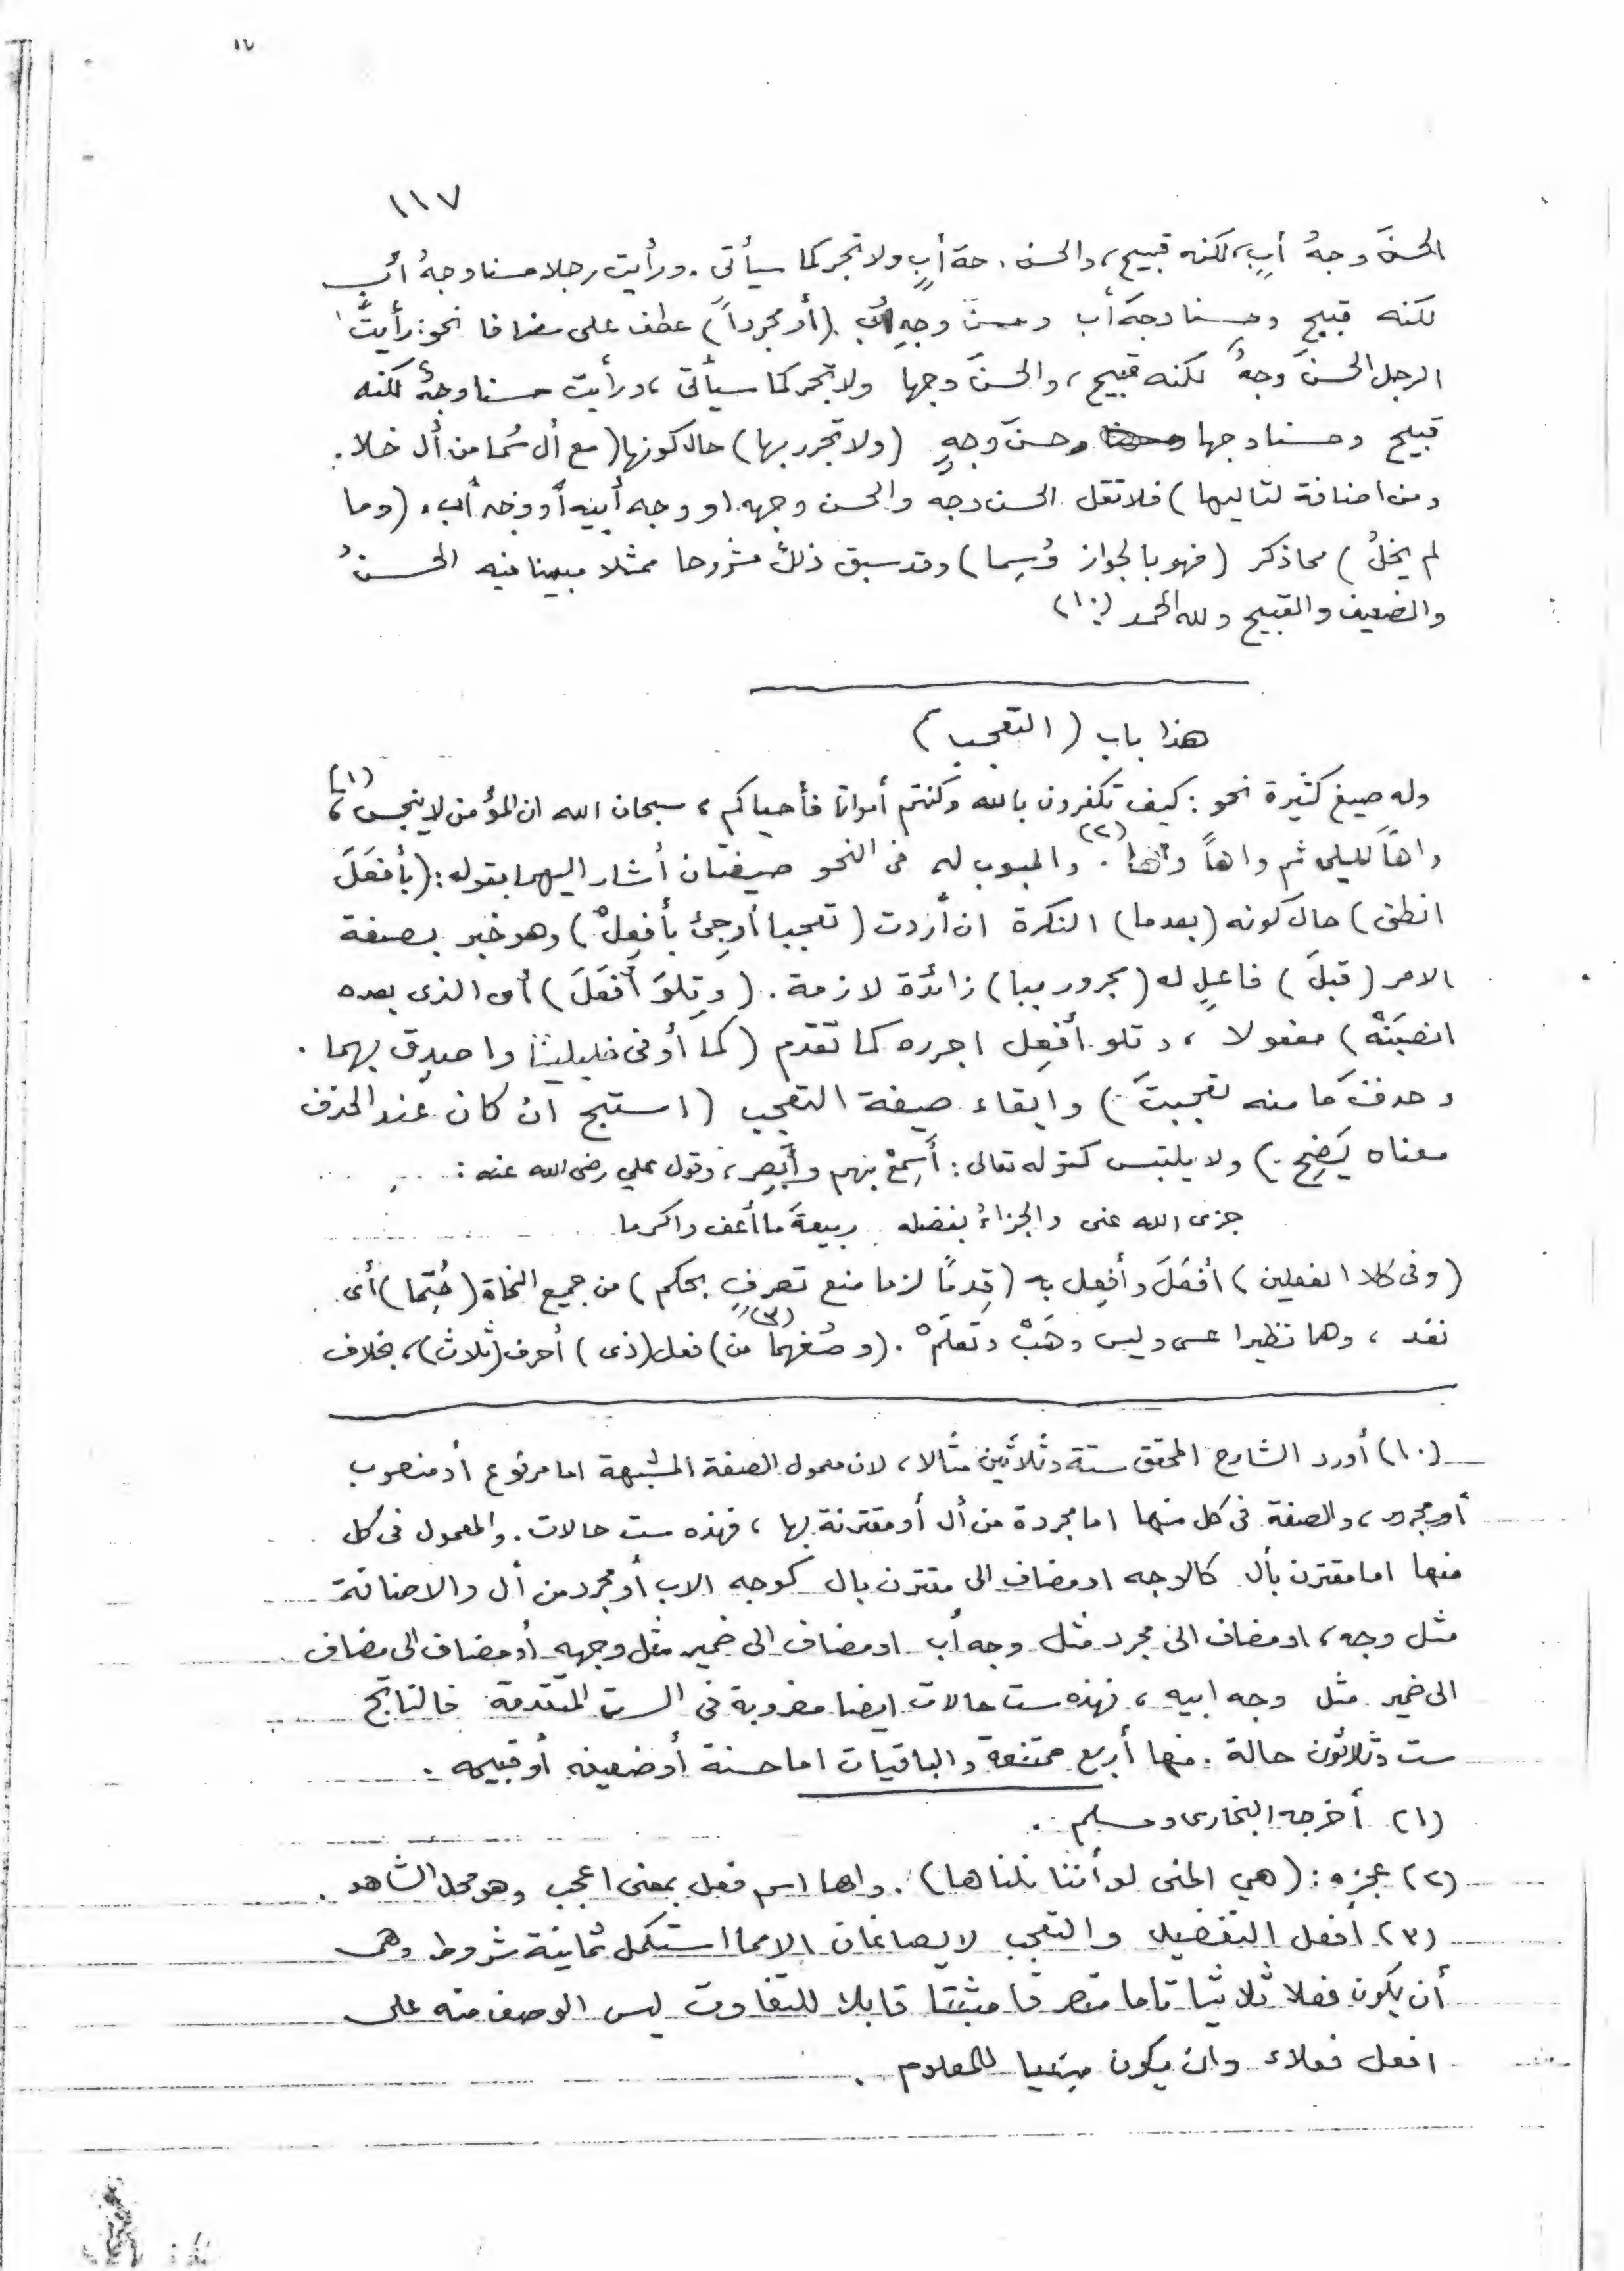 ١٧
١١٧
الحسنَ وجهُ أبٍ، لكنه قبيح، والحسن وجهَ أبٍ ولا تجر كما سيأتى. ورأيت رجلا حسنا وجهُ أب
لكنه قبيح وحسنا وجهَ أب وحسنَ وجهِ أب. (أو مجرداً) عطف على مضافا نحو: رأيتُ
الرجل الحسنَ وجهٌ لكنه قبيح، والحسنَ وجها ولا تجر كما سيأتى، ورأيت حسنا وجهٌ لكنه
قبيح وحسنا وجها وحسنَ وجهٍ (ولا تجرر بها) حال كونها (مع أل سُما من أل خلا.
ومن اضافة لتاليها) فلا تقل الحسن وجهه والحسن وجهه او وجه أبيه أو وجه أب. (وما
لم يخلُ) مما ذكر (فهو بالجواز وُسِما) وقد سبق ذلك مشروحا ممثلا مبينا فيه الحسنُ
والضعيف والقبيح ولله الحمد (١٠)
هذا باب (التعجب)
وله صيغ كثيرة نحو: كيف تكفرون بالله وكنتم أمواتا فأحياكم، سبحان الله ان المؤمن لا ينجس (١)،
واهاً لليلى ثم واهاً واها (٢). والمبوب له فى النحو صيغتان أشار اليهما بقوله: (بأفعَلَ
انطق) حال كونه (بعد ما) النكرة ان أردت (تعجبا أو جِئ بأفعِلْ) وهو خبر بصيغة
الامر (قبلَ) فاعلٍ له (مجرور ببا) زائدة لازمة. (وتِلوَ أفعَلَ) أى الذى بعده
انصبَنْهُ) مفعولا، وتلو أفعِل اجرره كما تقدم (كما أوفى خليلينا واصدِق بهما.
وحذفَ ما منه تعجبتَ) وابقاء صيغة التعجب (استبح ان كان عند الحذف
معناه يَضِح.) ولا يلتبس كقوله تعالى: أَسمِعْ بهم وأَبصِر، وقول علي رضى الله عنه:
جزى الله عنى والجزاءُ بفضله ربيعةَ ما أعف واكرما
(وفى كلا الفعلين) أفعَلَ وأفعِل به (قِدمًا لزما منع تصرفٍ بحكم) من جميع النحاة (حُتِما) أى
نفذ، وهما نظيرا عسى وليس وهَبْ وتعلَّمْ. (وصُغهما (٣) من) فعل (ذى) أحرف (ثلاث)، بخلاف
(١٠) أورد الشارح المحقق ستة وثلاثين مثالا، لان معمول الصفة المشبهة اما مرفوع أو منصوب
أو مجرور، والصفة فى كل منها اما مجردة من أل أو مقترنة بها، فهذه ست حالات. والمعمول فى كل
منها اما مقترن بأل كالوجه او مضاف الى مقترن بال كوجه الاب أو مجرد من أل والاضافة
مثل وجه، او مضاف الى مجرد مثل وجه أب او مضاف الى ضمير مثل وجهه أو مضاف الى مضاف
الى ضمير مثل وجه ابيه، فهذه ست حالات ايضا مضروبة فى الست المتقدمة فالناتج
ست وثلاثون حالة. منها أربع ممتنعة والباقيات اما حسنة أو ضعيفه أو قبيحه.
(١) أخرجه البخارى ومسلم.
(٢) عجزه: (هي المنى لو أننا نلناها). واها اسم فعل بمعنى اعجب وهو محل الشاهد.
(٣) أفعل التفضيل والتعجب لا يصاغان الا مما استكمل ثمانية شروط وهى
أن يكون فعلا ثلاثيا تاما متصرفا مثبتا قابلا للتفاوت ليس الوصف منه على
افعل فعلاء وان يكون مبنيا للمعلوم.